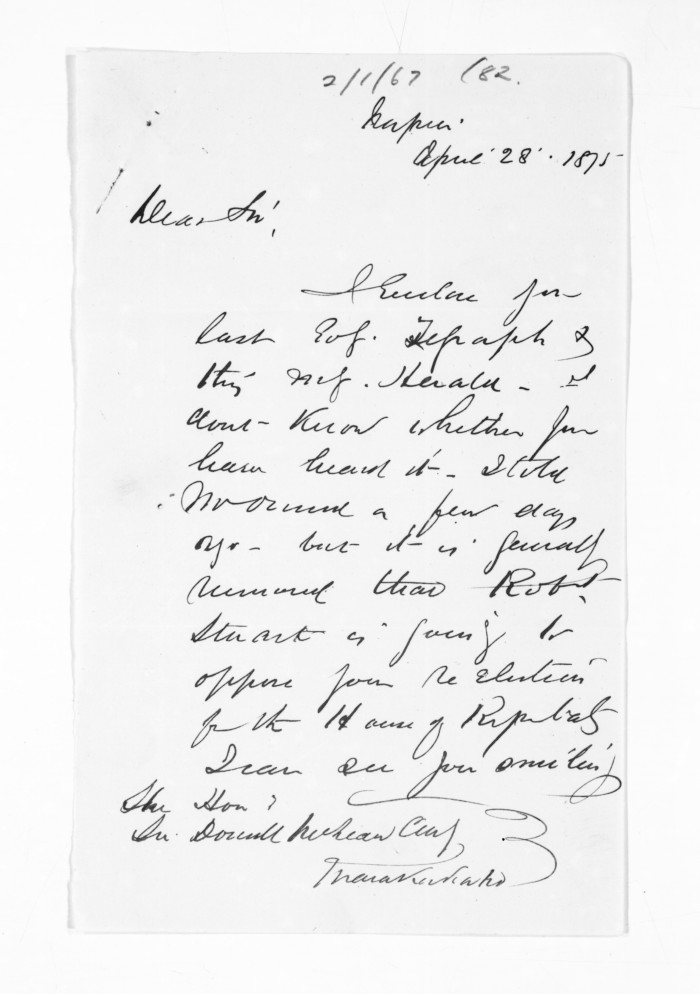 2/1/67 (82.
Napier
April 28. 1875
Dear Sir,
I Enclose you
last Evg. Telegraph &
this mg. Herald - I
dont Know whether you
have heard it - I told
Mr Ormond a few days
ago - but it is generally
rumored that Robt
Stuart is going to
oppose your re Election
for the House of Repsentats
I can see you smiling
The Hon
Sir Donald McLean
Maraekakaho